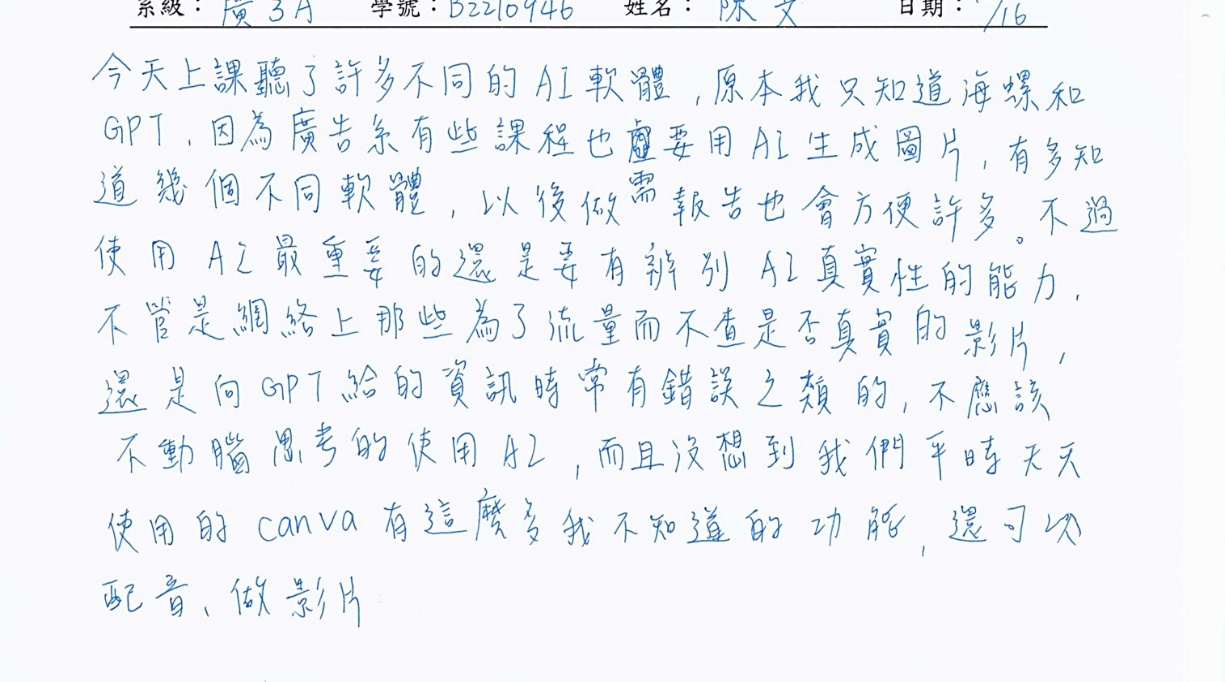 系級：廣3A 學號：B2210946 姓名：陳文 日期：/16
今天上課聽了許多不同的AI軟體，原本我只知道海螺和
GPT，因為廣告系有些課程也需要用AI生成圖片，有多知
道幾個不同軟體，以後做報告也會方便許多。不過
使用AI最重要的還是要有辨別AI真實性的能力，
不管是網絡上那些為了流量而不查是否真實的影片，
還是向GPT給的資訊時常有錯誤之類的，不應該
不動腦思考的使用AI，而且沒想到我們平時天天
使用的canva有這麼多我不知道的功能，還可以
配音、做影片